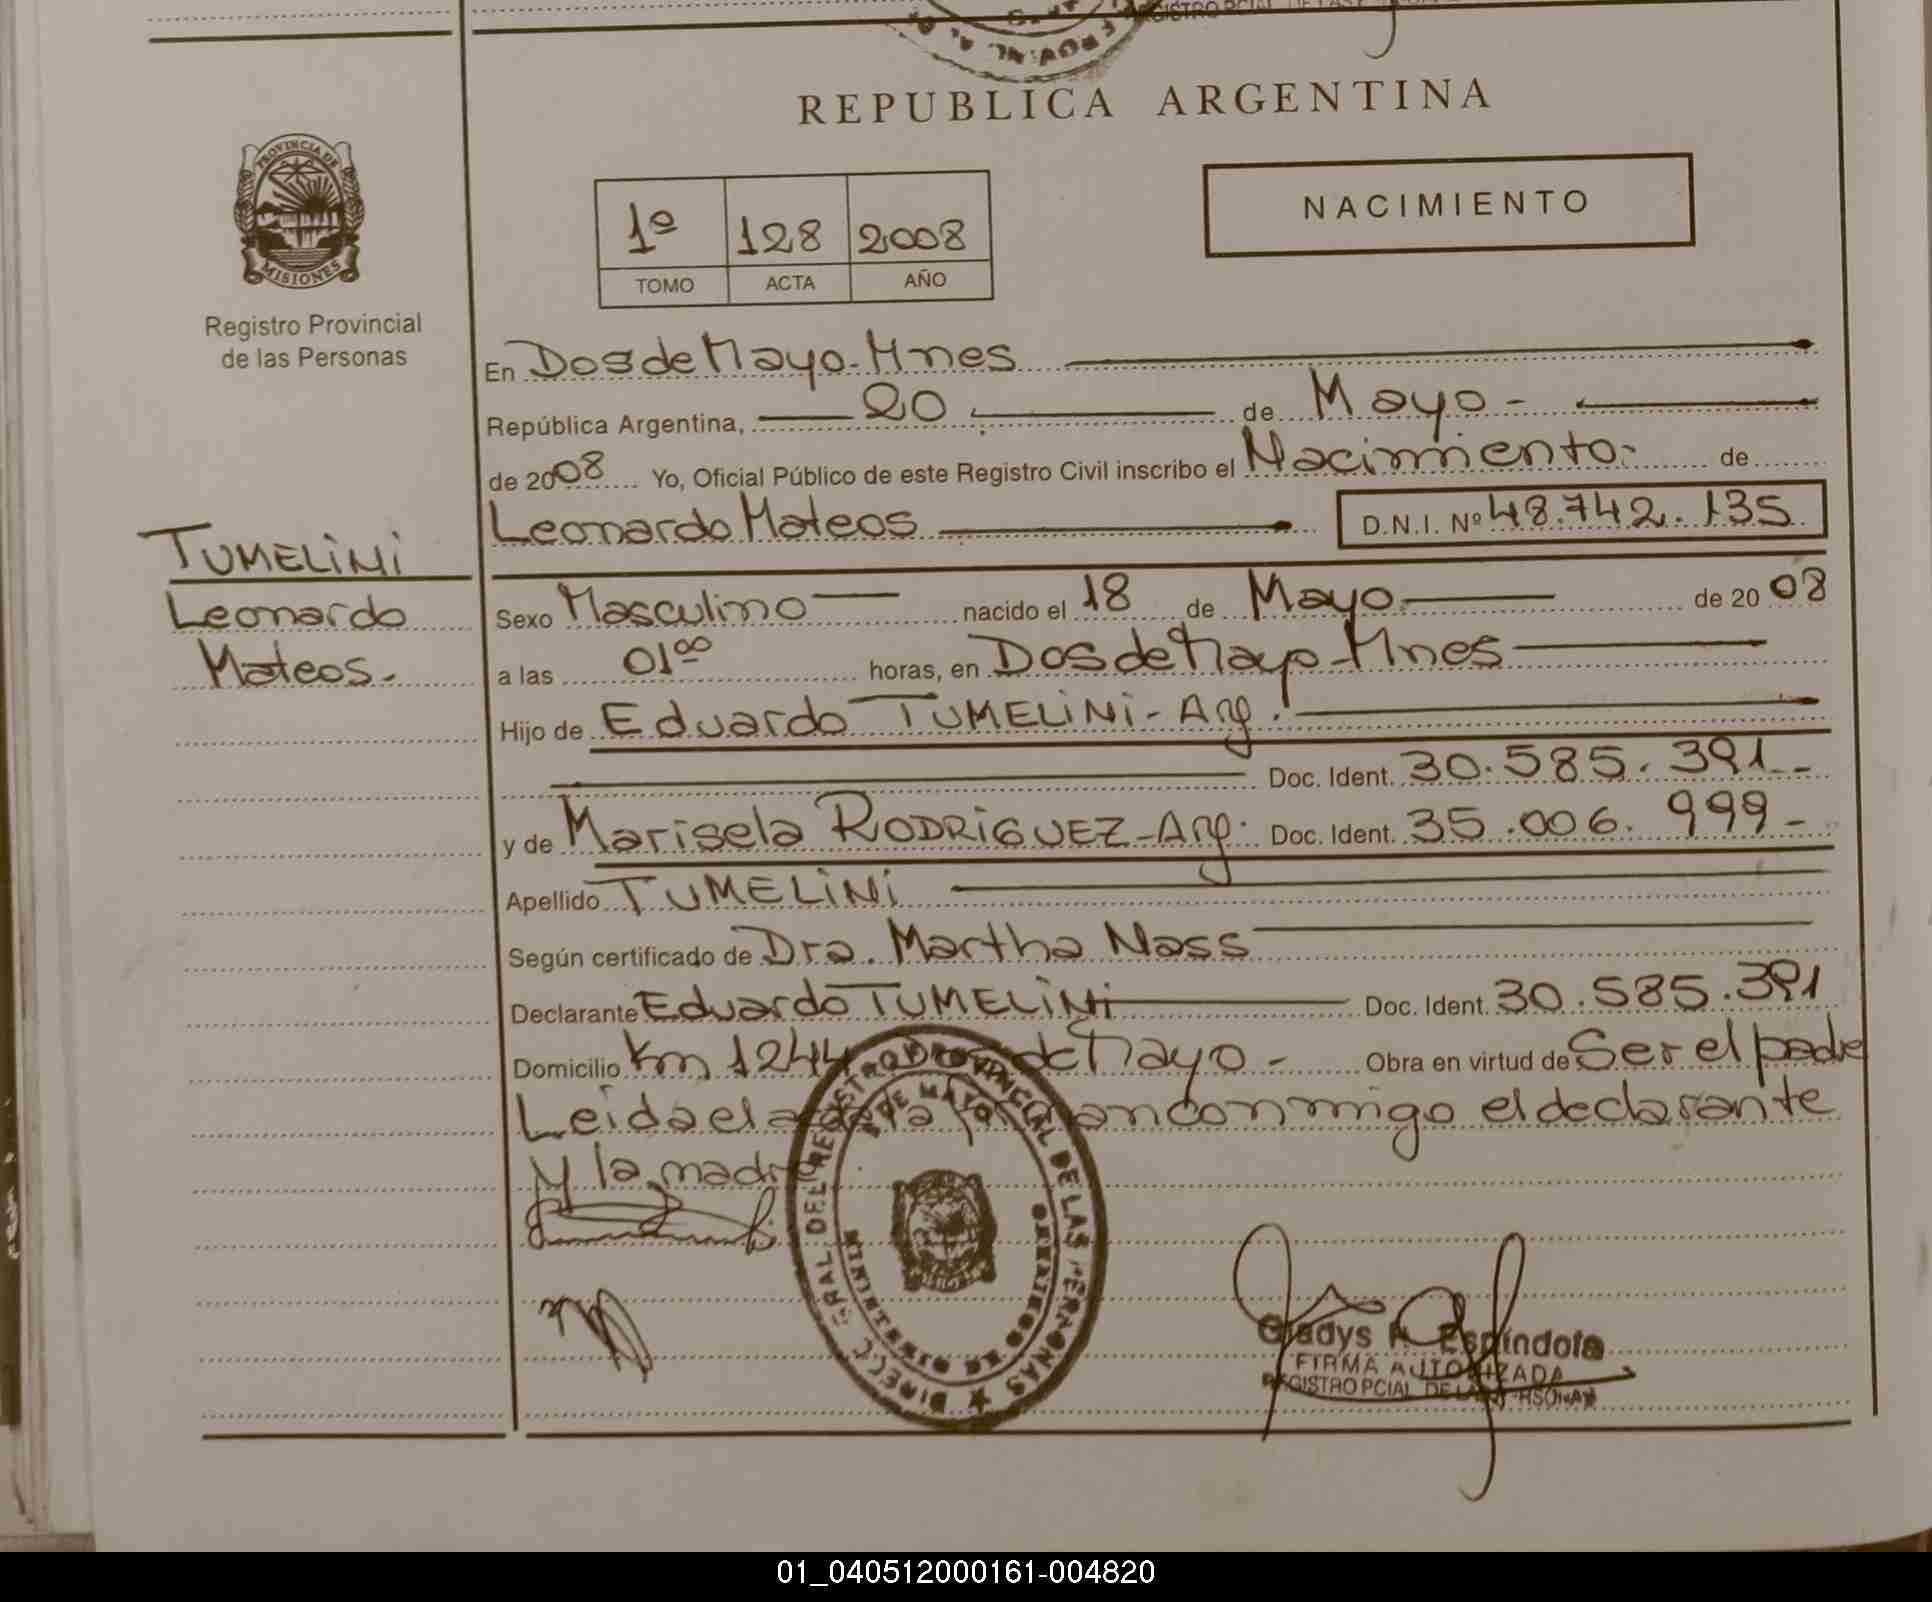 REPUBLICA ARGENTINA
PROVINCIA DE
MISIONES
Registro Provincial
de las Personas
1º 128 2008
TOMO ACTA AÑO
NACIMIENTO
En Dos de Mayo - Mnes
República Argentina, 20 de Mayo -
de 2008 Yo, Oficial Público de este Registro Civil inscribo el Nacimiento - de
Leonardo Mateos D.N.I. Nº 48.742.135
TUMELiNi
Leonardo
Mateos.
Sexo Masculino nacido el 18 de Mayo de 2008
a las 01⁰⁰ horas, en Dos de Mayo - Mnes
Hijo de Eduardo TUMELiNi - Arg.
Doc. Ident. 30.585.391 -
y de Marisela RODRiGUEZ - Arg. Doc. Ident. 35.006.999 -
Apellido TUMELiNi
Según certificado de Dra. Martha Nass
Declarante Eduardo TUMELiNi Doc. Ident. 30.585.391
Domicilio Km 1244 de Mayo - Obra en virtud de Ser el padre
Leida el acta la firman conmigo el declarante
y la madre
Gladys Espíndola
FIRMA AUTORIZADA
REGISTRO PCIAL DE LAS PERSONAS
01_040512000161-004820